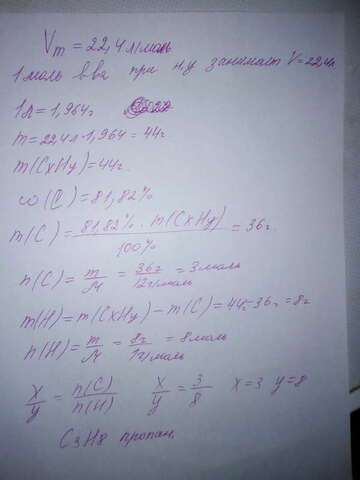 Vm = 22,4 л/моль
1 моль в-ва при н.у занимает V=22,4л
1л = 1,964г
m = 22,4л · 1,964 = 44г.
m(CxHy) = 44г.
ω(C) = 81,82%
m(C) = 81,82% · m(CxHy) / 100% = 36г.
n(C) = m/M = 36г / 12г/моль = 3 моль
m(H) = m(CxHy) - m(C) = 44г - 36г = 8г
n(H) = m/M = 8г / 1г/моль = 8 моль
x/y = n(C)/n(H) x/y = 3/8 x=3 y=8
C3H8 пропан.